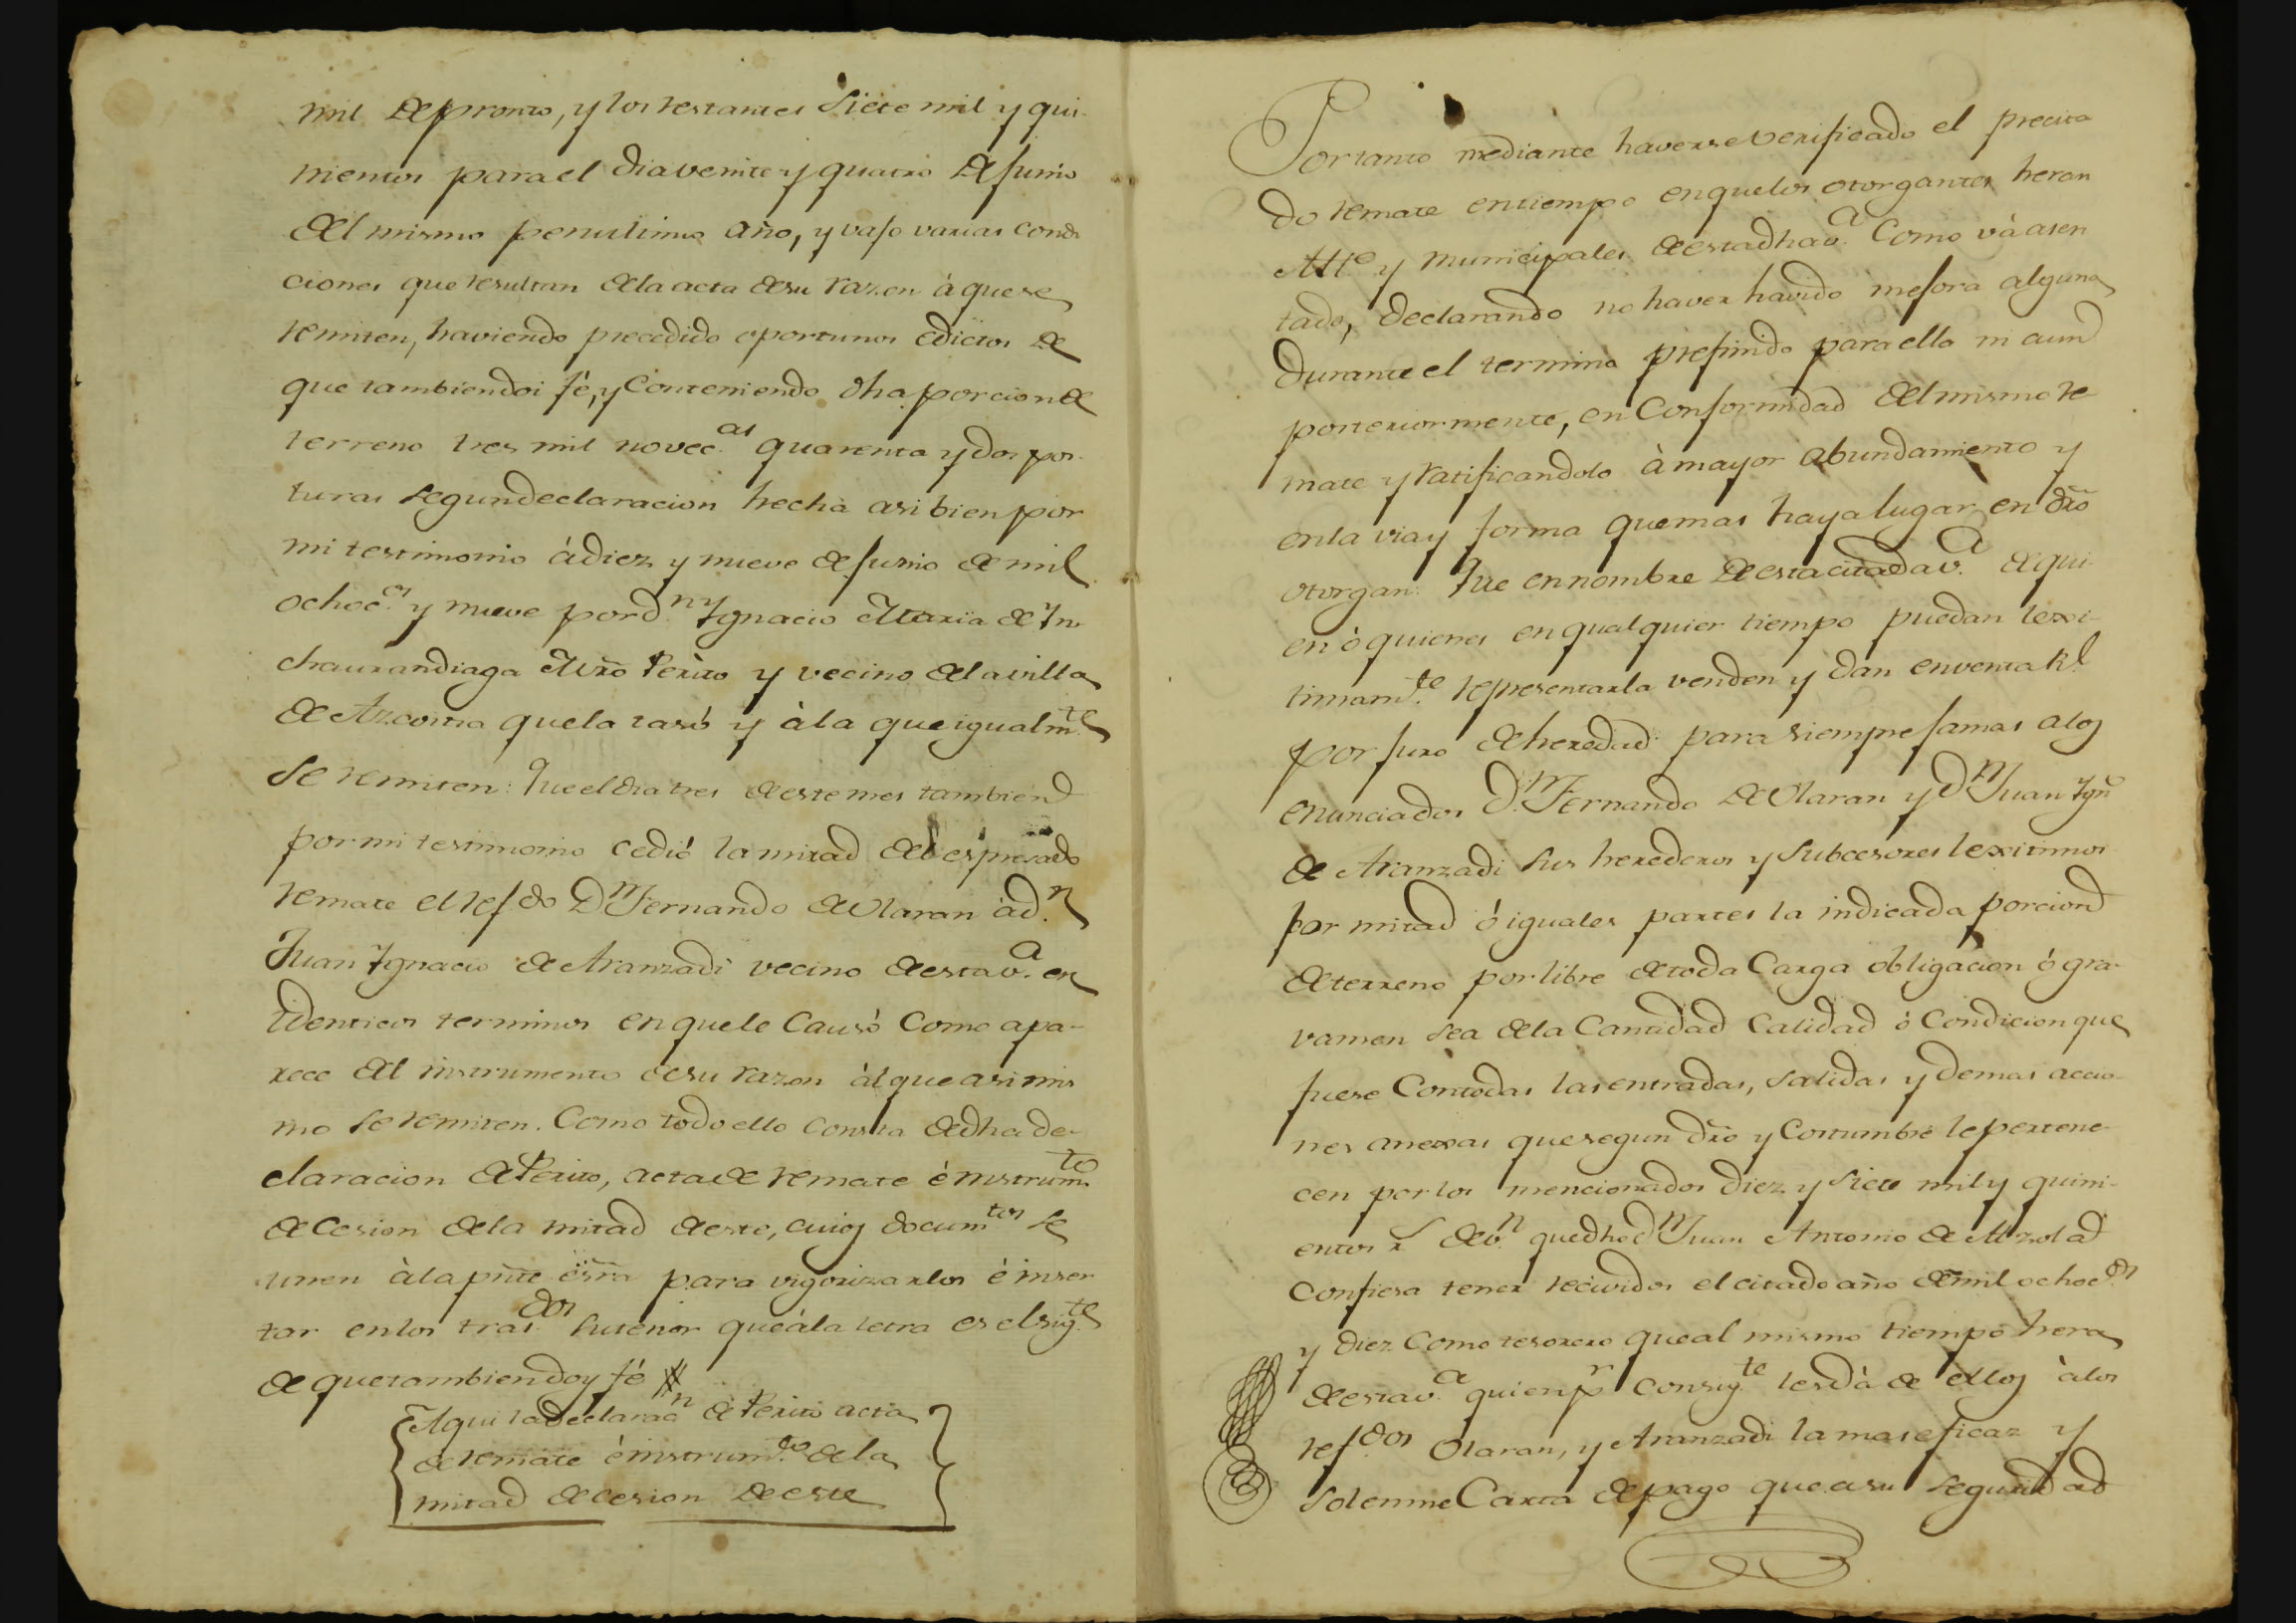 mil de pronto, y los restantes siete mil y qui-
nientos para el dia veinte y quatro de Junio
del mismo penultimo año, y vajo varias condi
ciones que resultan de la acta de su razon à que se
remiten, haviendo precedido oportunos edictos de
que tambien doi fé, y conteniendo dha porcion de
terreno tres mil novec.as quarenta y dos pos-
turas segun declaracion hecha asi bien por
mi testimonio à diez y nueve de Junio de mil
ochoc.os y nueve por d.n Ygnacio Maria de In-
chaurandiaga Mro Perito y vecino de la villa
de Azcoitia que la tasó y à la que igualm.te
se remiten: Que el dia tres de este mes tambien
por mi testimonio cedió la mitad del espresado
remate el ref.do D.n Fernando de Olaran à d.n
Juan Ygnacio de Aranzadi vecino de esta v.a en
identicos terminos en que le causó como apa-
rece del instrumento de su razon àl que asi mis
mo se remiten. Como todo ello consta de dha de-
claracion de Perito, acta de remate è instrum.to
de cesion de la mitad de este, cuios docum.tos se
unen à la pñte esrra para vigorizarlos è inser
tar en los tras.dos su tenor que à la letra es el sig.te
de que tambien doy fé
Aqui la declarac.n de Perito acta
de remate è instrum.to de la
mitad de cesion de este
Por tanto mediante haverse verificado el precita
do remate en tiempo en que los otorgantes heran
Alc.e y municipales de esta dha v.a como và asen
tado, declarando no haver havido mejora alguna
durante el termino prefinido para ello ni aun
posteriormente, en conformidad del mismo re-
mate y ratificandolo à mayor abundamiento y
en la via y forma que mas haya lugar en dro
otorgan: Que en nombre de esta citada v.a de qui-
en ò quienes en qualquier tiempo puedan lexi-
timam.te representarla venden y dan en venta R.l
por juro de heredad para siempre jamas a los
enunciados D.n Fernando de Olaran y D.n Juan Ygn.o
de Aranzadi sus herederos y subcesores lexitimos
por mitad ó iguales partes la indicada porcion
de terreno por libre de toda carga obligacion ò gra-
vamen sea de la cantidad calidad ò condicion que
fuese con todas las entradas, salidas y demas accio-
nes anexas que segun dro y costumbre le pertene-
cen por los mencionados diez y siete mil y quini-
entos r.s de v.n que dho d.n Juan Antonio de
confiesa tener recividos el citado año de mil ochoc.os
y diez como tesorero que al mismo tiempo hera
de esta v.a quien p.r consig.te les dà de ellos à los
ref.dos Olaran, y Aranzadi la mas eficaz y
solemne Carta de pago que a su seguridad